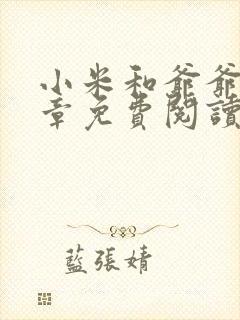 小米和爺爺
章免費閱讀
藍張婧